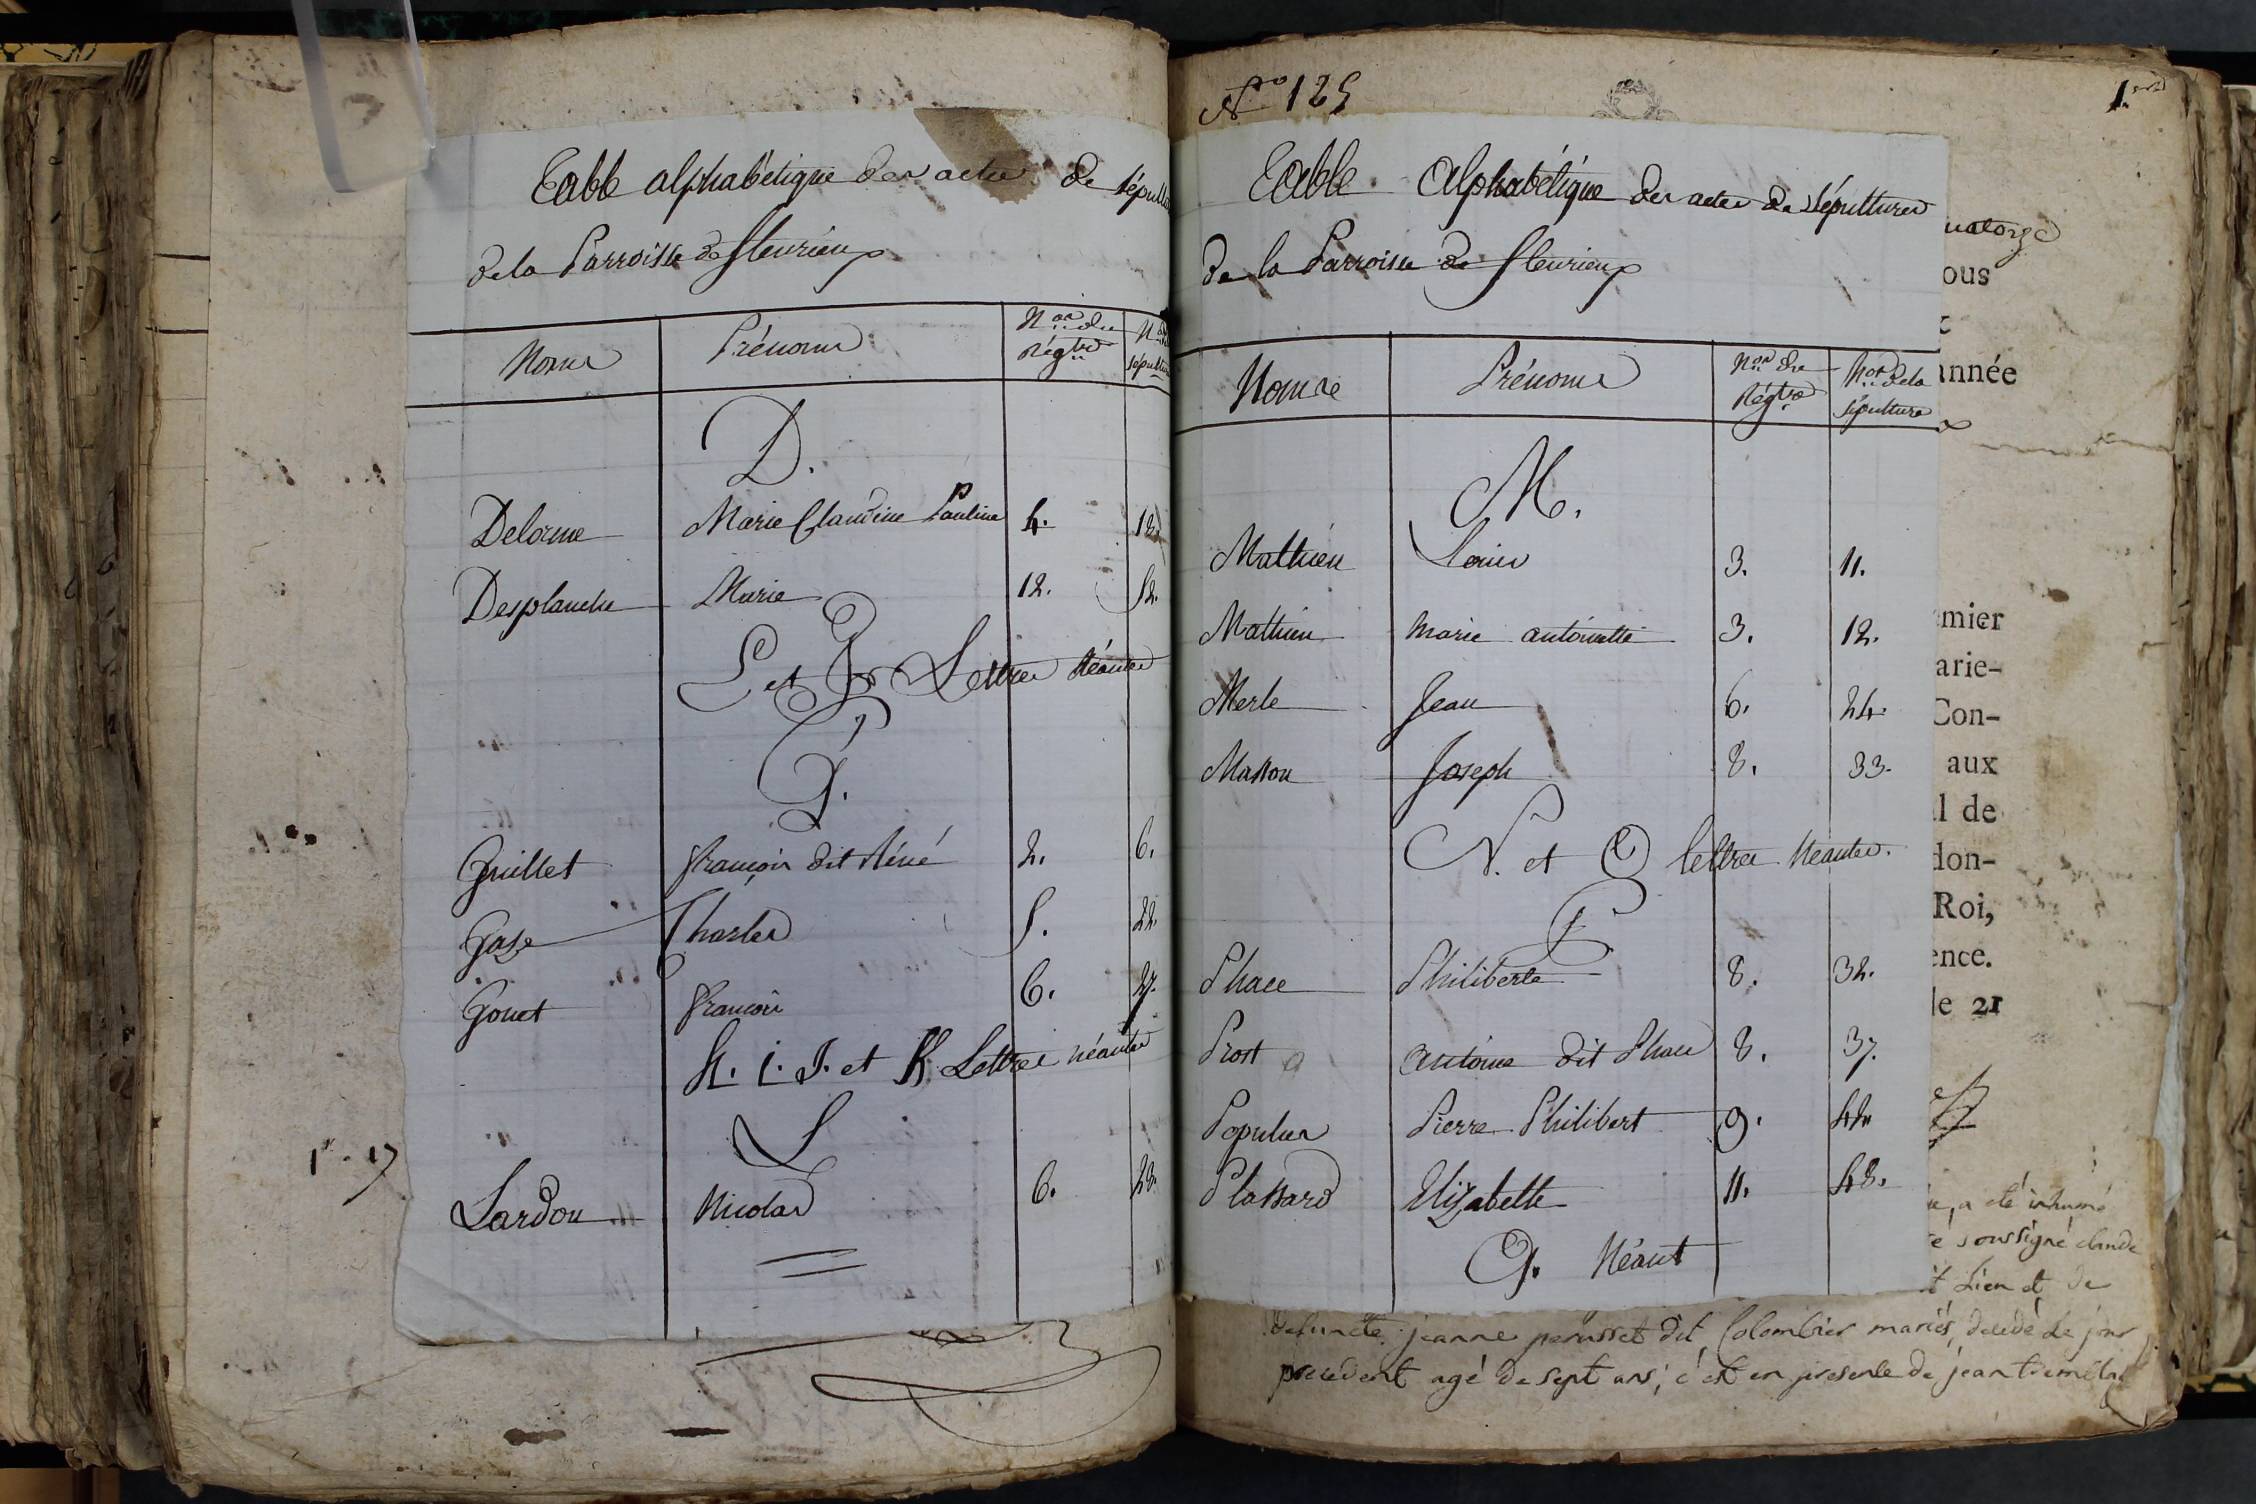 Table alphabétique des actes de sépultu
de la Parroisse de fleurieux
Noms Prénoms Nos du Régtre Nos sépulture
D.
Delorme Marie Claudine Pauline 4. 18.
Desplanche Marie 12. 52.
E et F Lettres Néantes
G.
Guillet françois dit Réné 2. 6.
Gase Charles 5. 22.
Gonet françois 6. 27.
H. i. J. et K. Lettres néantes
L
Lardon Nicolas 6. 23.
1 . 17
No 125
1er
Table Alphabétique des actes de Sépultures
de la Parroisse de fleurieux
Noms Prénoms Nos du Régtre Nos de la sépulture
M.
Mathieu Louis 3. 11.
Mathieu marie antoinette 3. 12.
Merle Jean 6. 24.
Masson Joseph 8. 33.
N. et O lettres Néantes.
P
Phace Philiberte 8. 32.
Prost antoine dit Phace 8. 37.
Populus Pierre Philibert 9. 42.
Plassard Elizabette 11. 48.
Q. Néant
uatorze
ous
année
mier
arie-
Con-
aux
l de
don-
Roi,
ence.
le 21
a été inhumé
soussigné claude
t Lien et de
defuncte jeanne perusset dit Colombier mariés, decedé le jour
precedent agé de sept ans; c'est en presence de jean